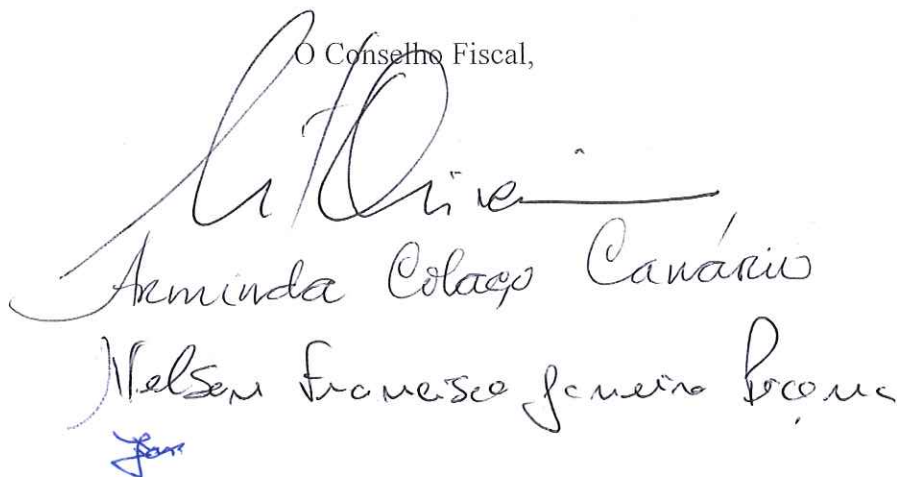 O Conselho Fiscal,
Oliveira
Arminda Colaço Canário
Nelson Francisco Janeiro